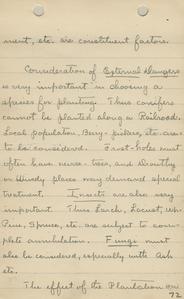 ment, etc. are constituent factors.
Consideration of External Dangers
is very important in choosing a
species for planting. Thus conifers
cannot be planted along a Railroad.
Local population, Berry-pickers, etc. are
to be considered. Frost-holes must
often have nurse-trees, and Drouthy
or Windy places may demand special
treatment. Insects are also very
important. Thus Larch, Locust, Wh.
Pine, Spruce, etc. are subject to com-
plete annihilation. Fungi must
also be considered, especially with Ash
etc.
The effect of the Plantation on
72